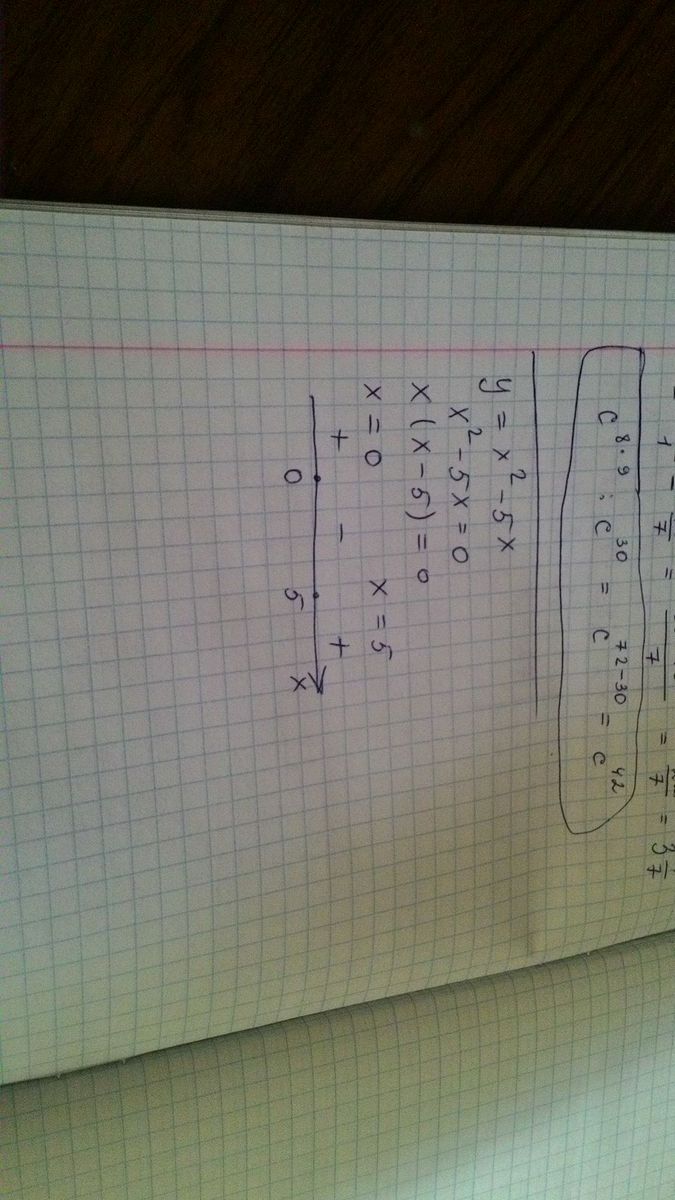 c^{8·9} : c^{30} = c^{72-30} = c^{42}
y = x² - 5x
x² - 5x = 0
x(x - 5) = 0
x = 0 x = 5
+ - +
0 5 x